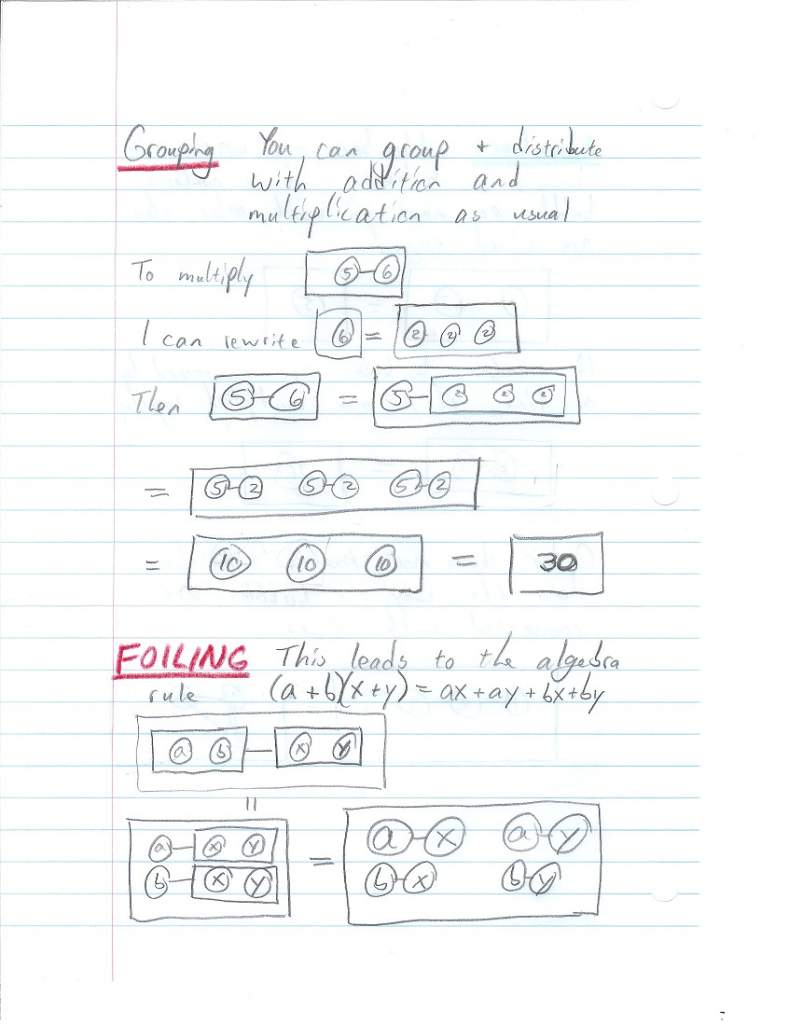 Grouping You can group + distribute
with addition and
multiplication as usual
To multiply 5 6
I can rewrite 6 = 2 2 2
Then 5 6 = 5 2 2 2
= 5 2 5 2 5 2
= 10 10 10 = 30
FOILING This leads to the algebra
rule (a+b)(x+y) = ax+ay+bx+by
a b x y
=
a x y
b x y = a x a y
b x b y